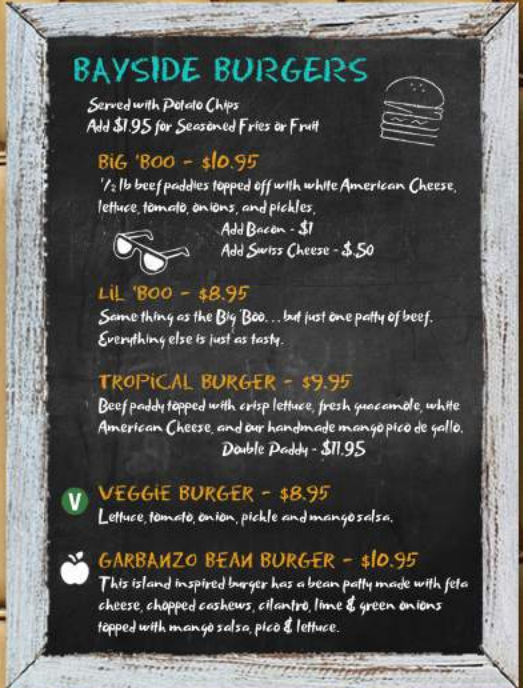 BAYSIDE BURGERS
Served with Potato Chips
Add $1.95 for Seasoned Fries or Fruit
BIG 'BOO - $10.95
1/2 lb beef paddies topped off with white American Cheese,
lettuce, tomato, onions, and pickles.
Add Bacon - $1
Add Swiss Cheese - $.50
LIL 'BOO - $8.95
Same thing as the Big 'Boo... but just one patty of beef.
Everything else is just as tasty.
TROPICAL BURGER - $9.95
Beef paddy topped with crisp lettuce, fresh guacamole, white
American Cheese, and our handmade mango pico de gallo.
Double Paddy - $11.95
V VEGGIE BURGER - $8.95
Lettuce, tomato, onion, pickle and mango salsa.
GARBANZO BEAN BURGER - $10.95
This island inspired burger has a bean patty made with feta
cheese, chopped cashews, cilantro, lime & green onions
topped with mango salsa, pico & lettuce.